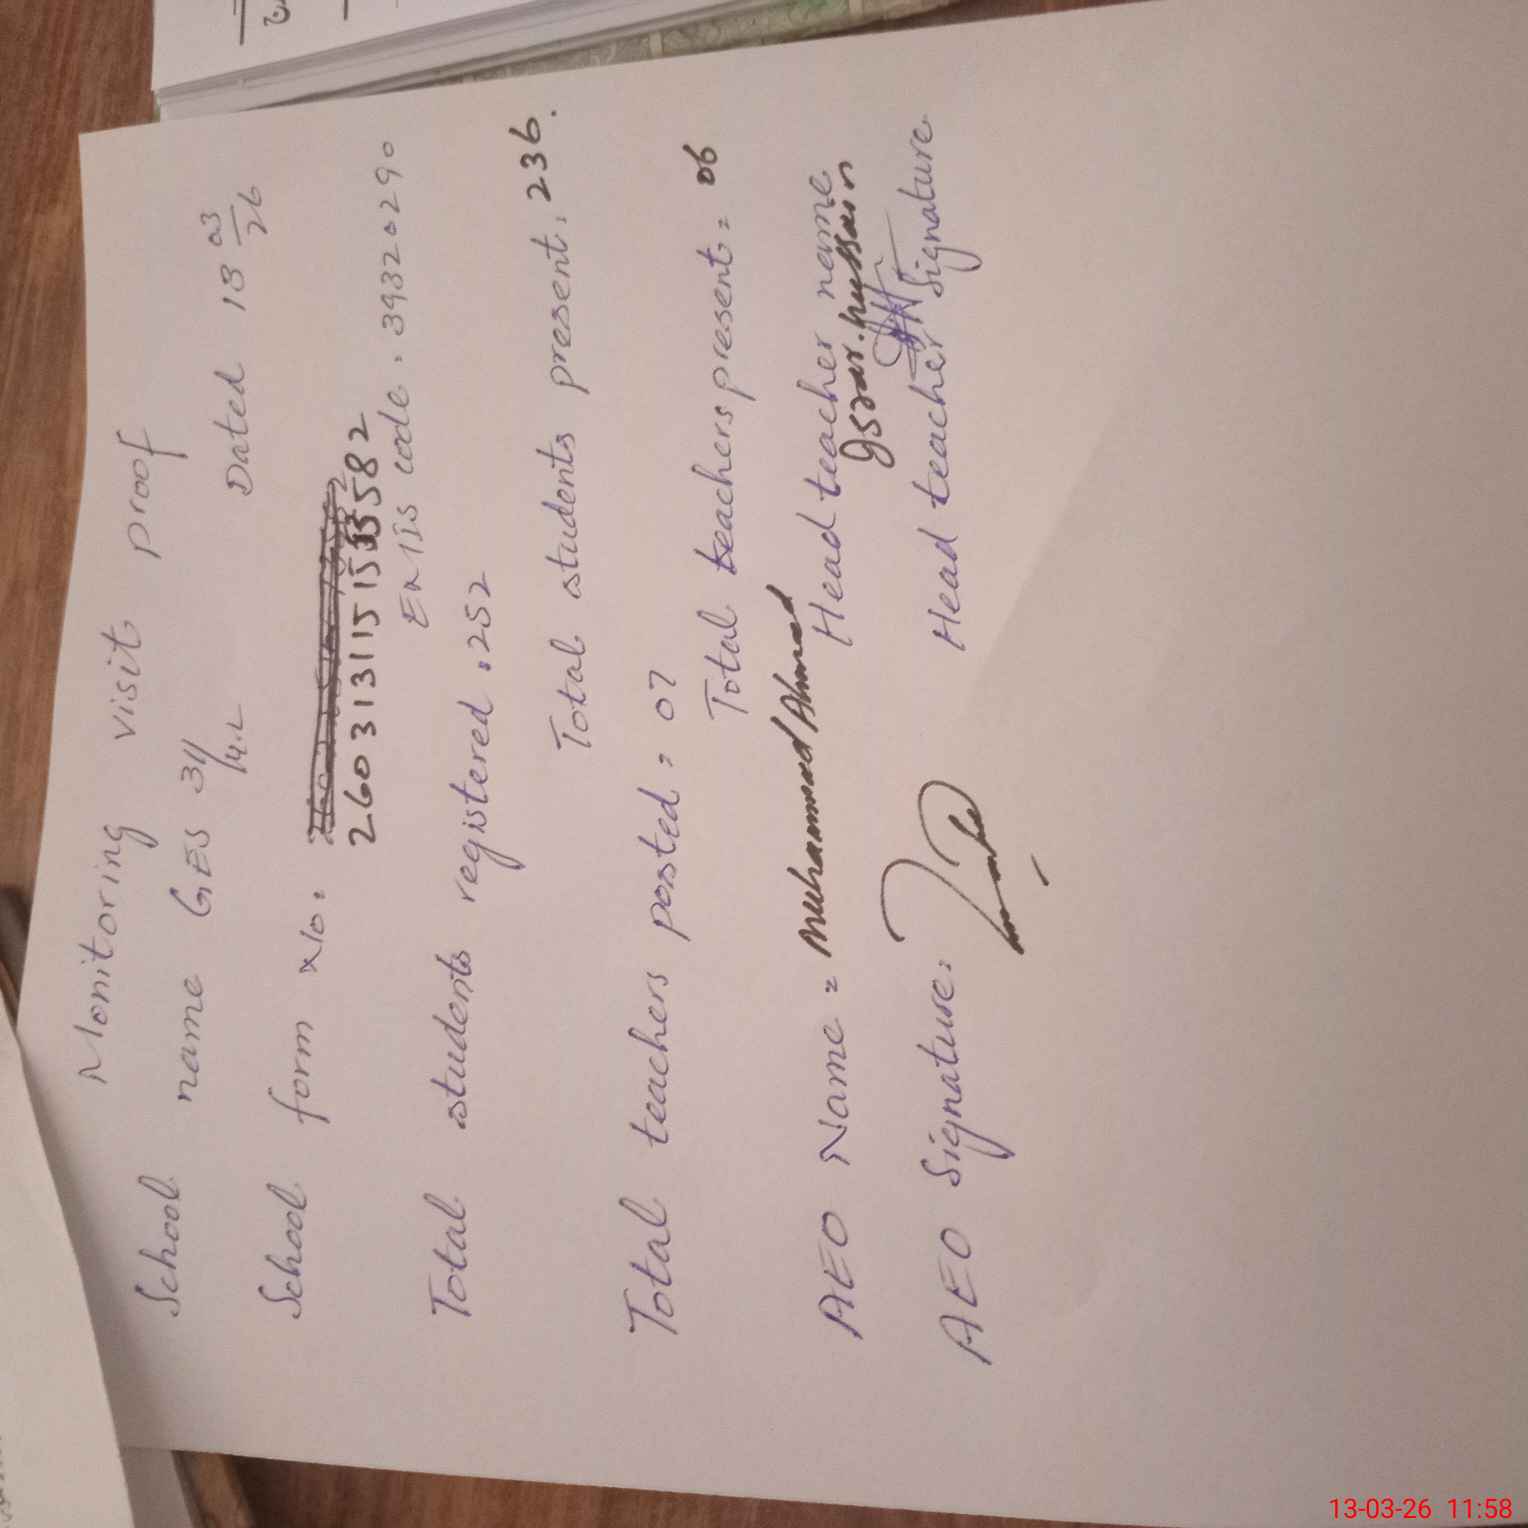 Monitoring visit proof
School name GES 34/14.L Dated 13 03/26
School form No: 
26031311515 582
EMIS code: 39320290
Total students registered: 252
Total students present: 236.
Total teachers posted = 07
Total teachers present = 06
AEO Name = Muhammad Ahmad Head teacher name
Israr. hussain
AEO Signature: Head teacher Signature
13-03-26 11:58